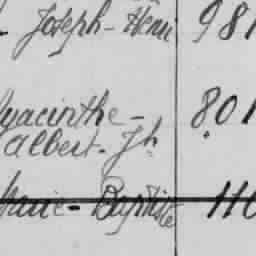 Joseph-Henri 981
Hyacinthe- 801
Albert-Jh
Marie-Baptiste 110